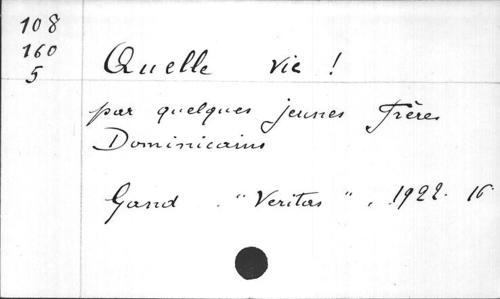 108
160
5
Quelle vie !
par quelques jeunes Frères
Dominicains
Gand. "Veritas", 1922. 16